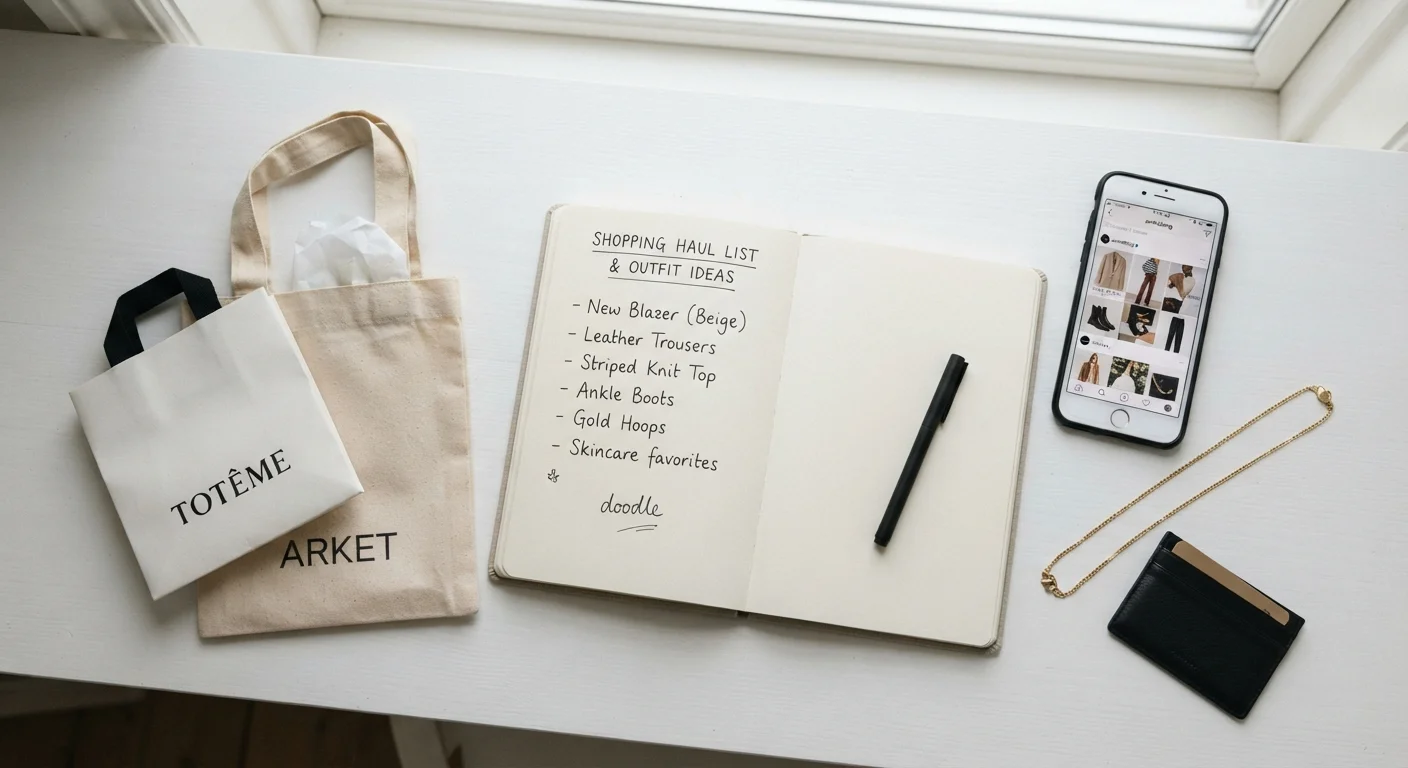 TOTÊME
ARKET
SHOPPING HAUL LIST
& OUTFIT IDEAS
- New Blazer (Beige)
- Leather Trousers
- Striped Knit Top
- Ankle Boots
- Gold Hoops
- Skincare favorites
doodle